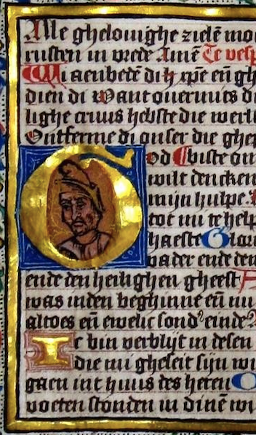 Alle ghelouighe zielē mo
rusten in vrede Amē Te vesp
Wi aenbeden di h xpe en gh
dien di Want ouermits d
lighe cruus hebste die werl
Ontferme di onser die ghe
God wilste on
wilt dencken
mijn hulpe
tot mi te help
haeste Glor
vader ende den
ende den heilighen gheest
was inden beghinne eñ nu
altoes eñ ewelic sond' einde
Ic bin verblijt in desen
die mi gheseit sijn wi
gaen int huus des heren O
voeten stonden in dinē wi